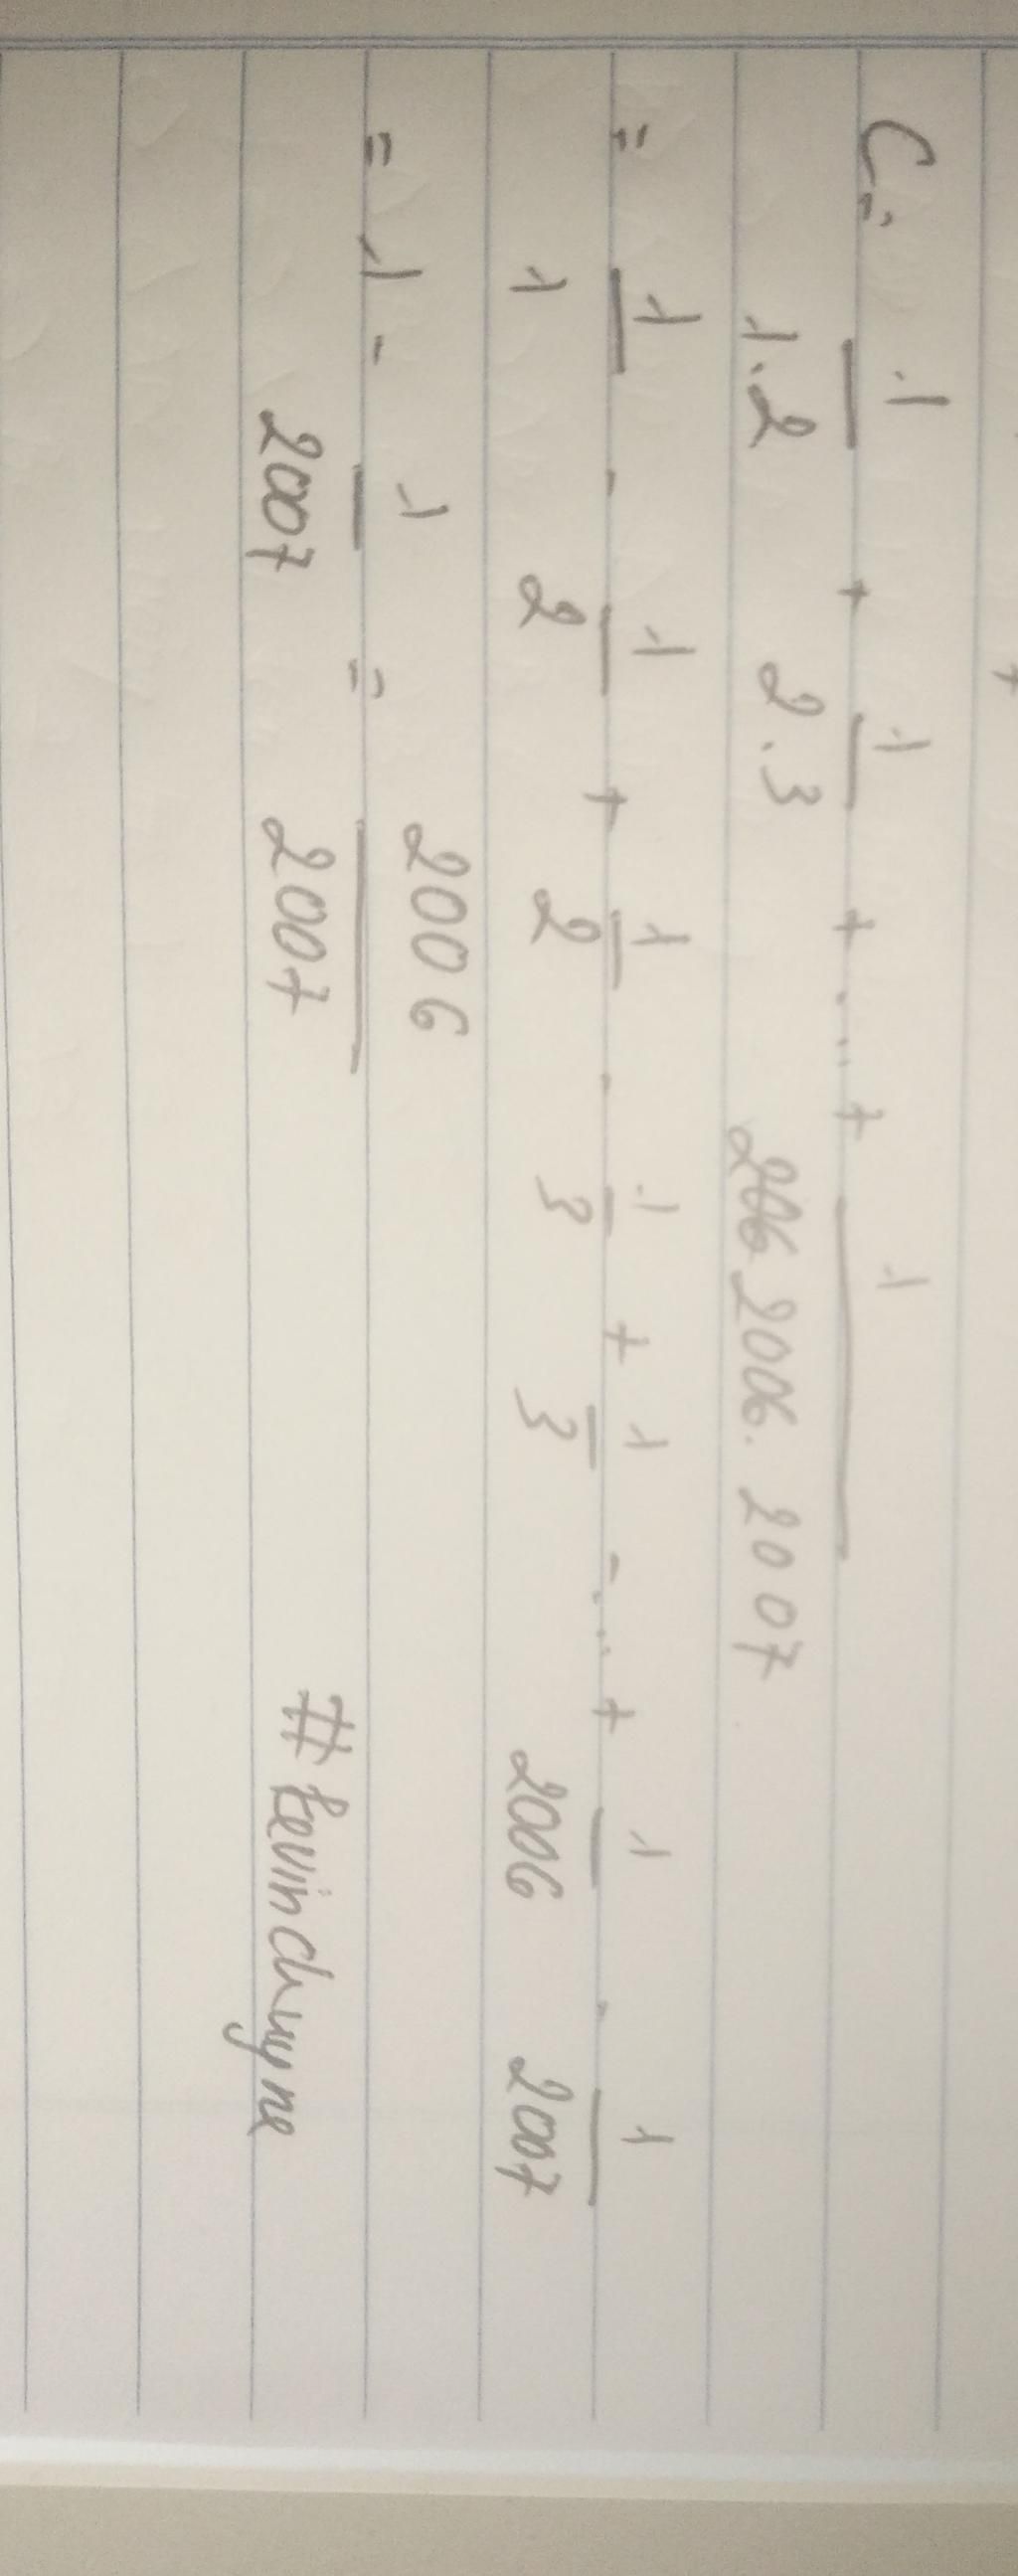 C = 1/1.2 + 1/2.3 + ... + 1/2006.2007
= 1/1 - 1/2 + 1/2 - 1/3 + 1/3 - ... + 1/2006 - 1/2007
= 1 - 1/2007 = 2006/2007
#kevinduyne